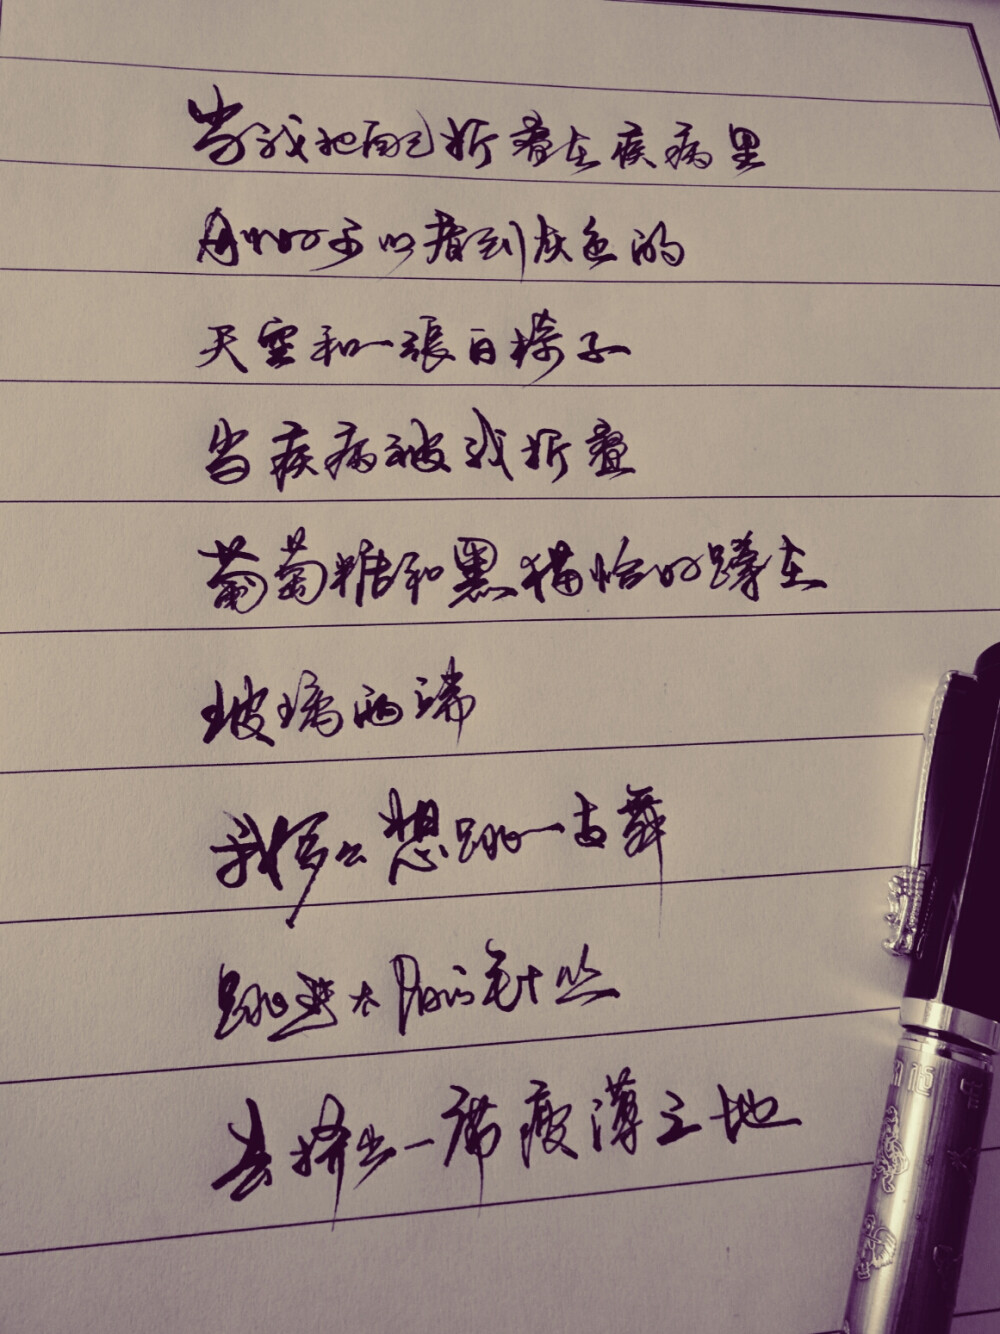 当我把自己折叠在疾病里
恰好可以看到灰色的
天空和一張白椅子
当疾病被我折叠
葡萄糖和黑猫恰好蹲在
玻璃两端
我多么想跳一支舞
跳进太阳的毛叶丛
去挤出一席瘦薄之地